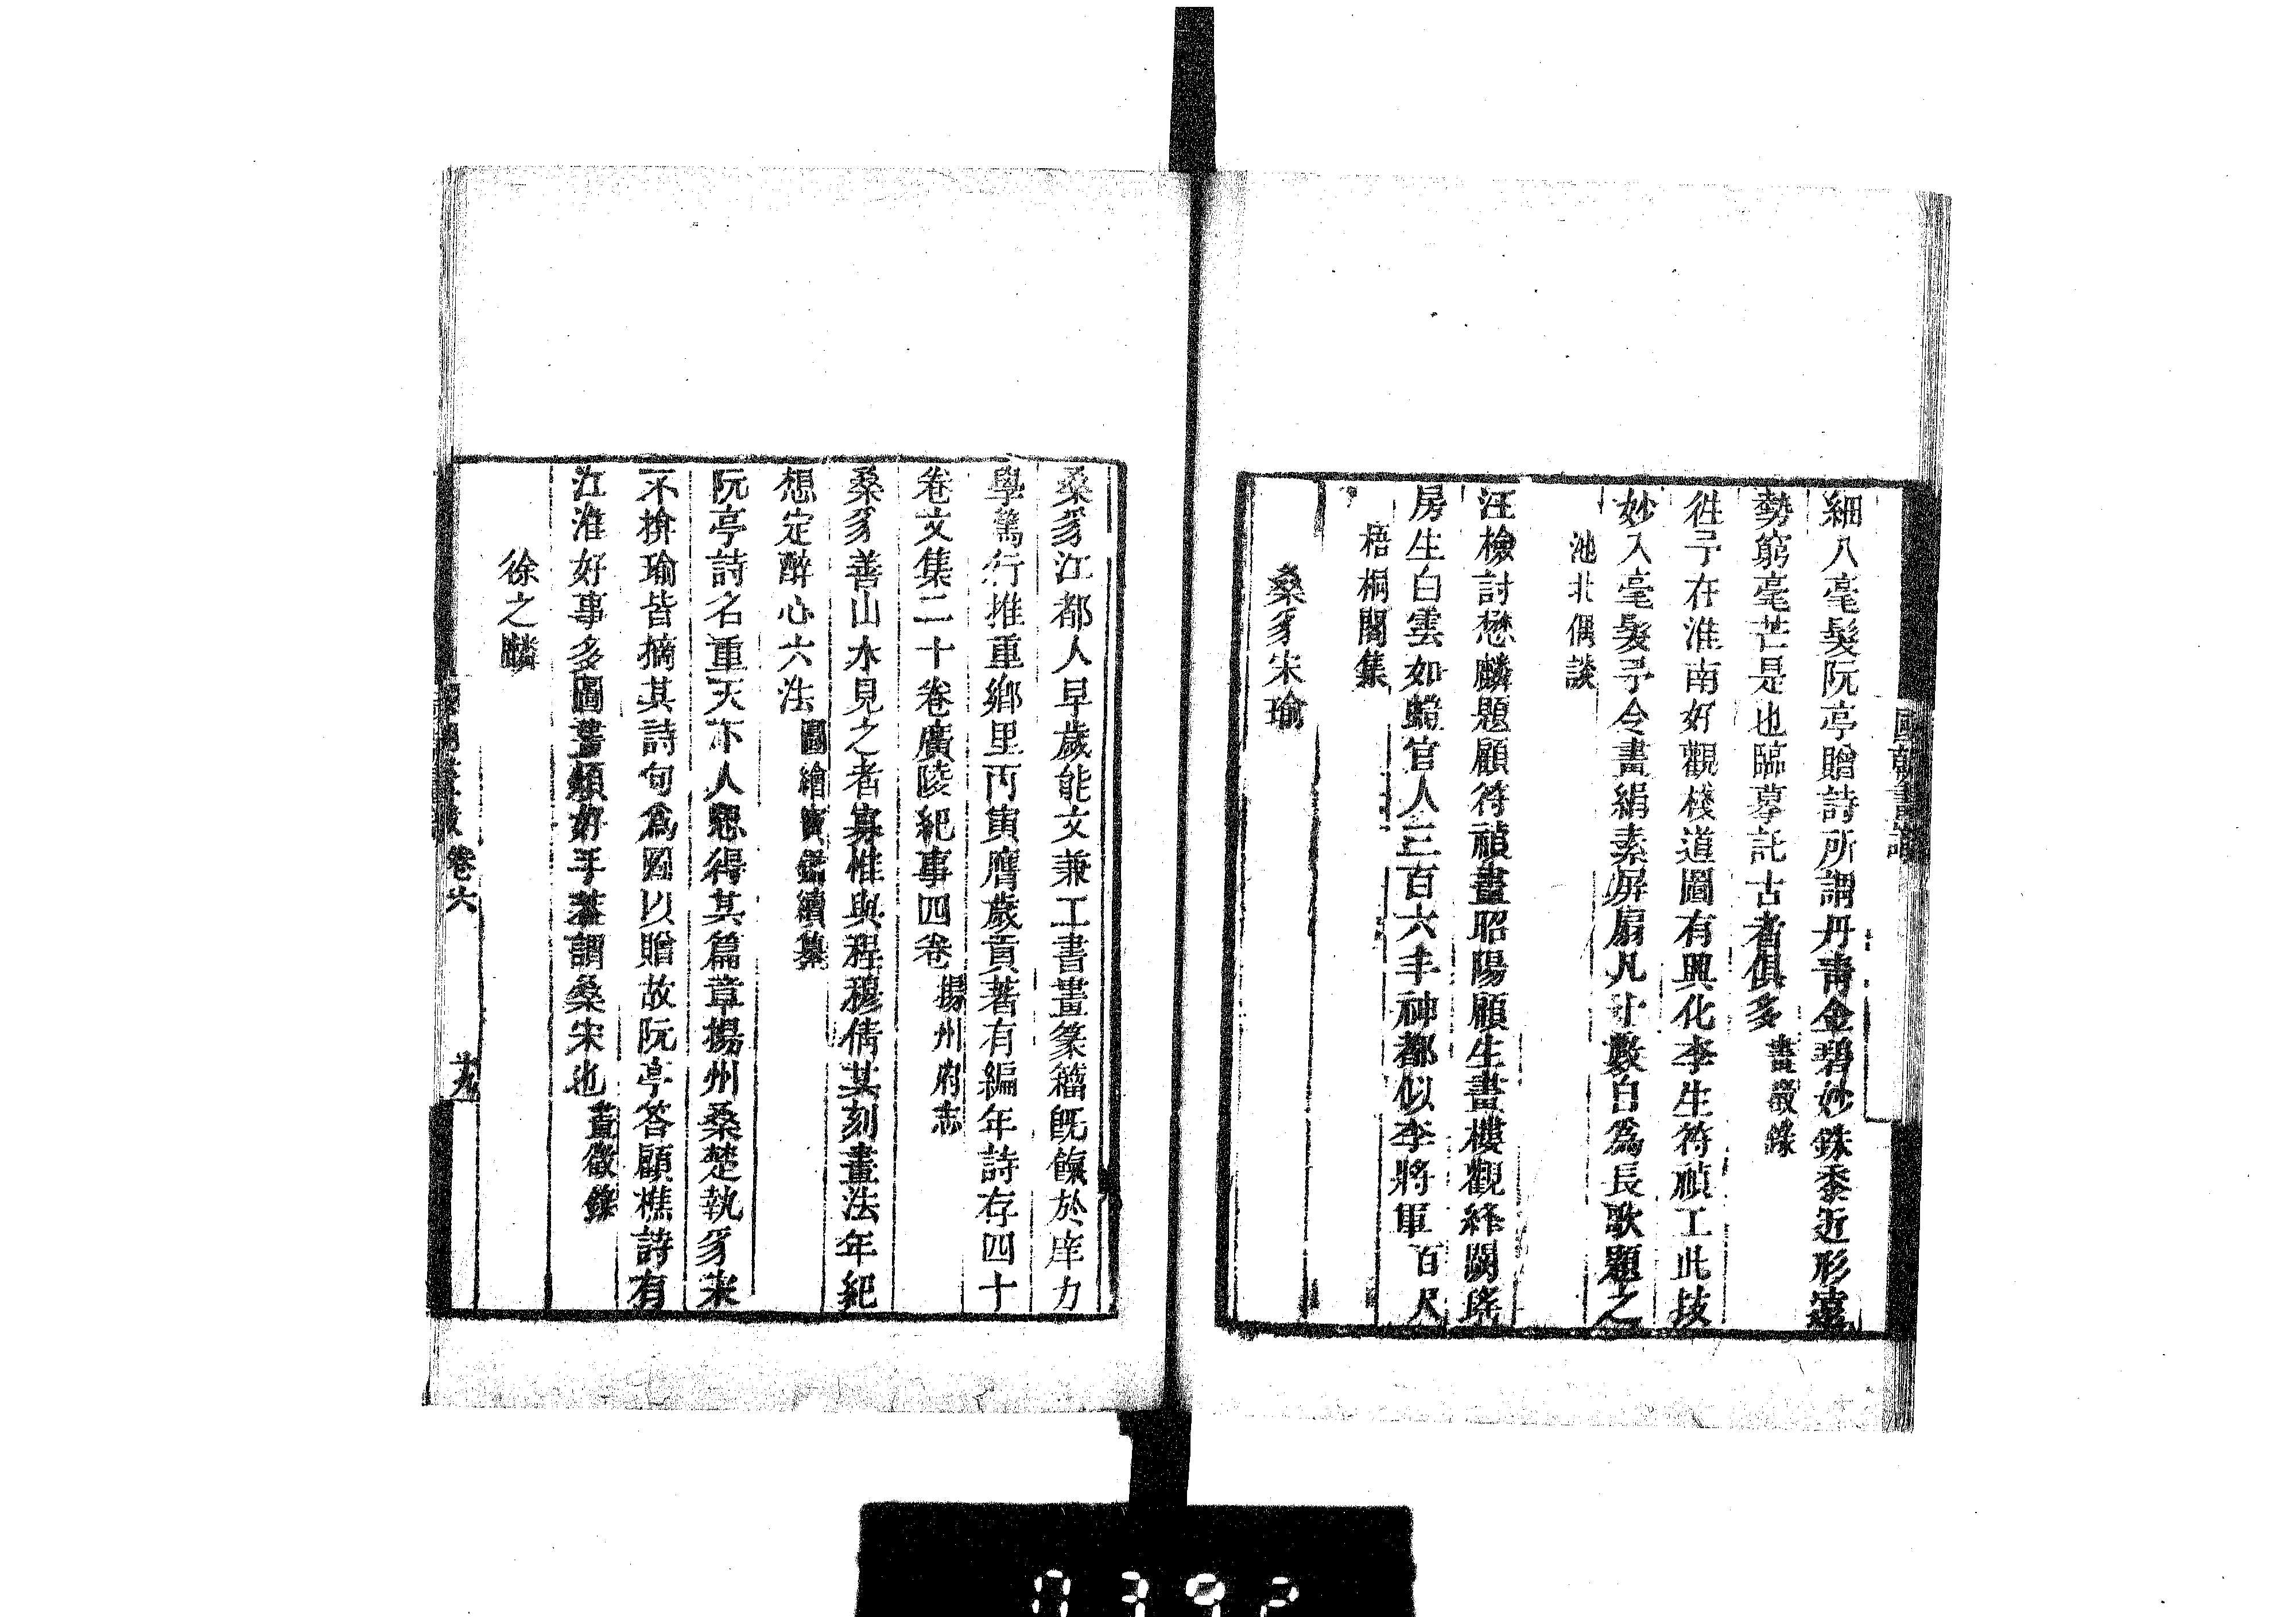 細入毫髮阮亭贈詩所謂丹青金碧妙銖黍近形遠
勢窮毫芒是也臨摹託古者俱多 畫徵錄
徃予在淮南好觀棧道圖有興化李生符禎工此技
妙入毫髮予令畫絹素屏扇凡十數自為長歌題之
池北偶談
汪檢討懋麟題顧符禎畫昭陽顧生畫樓觀絳闕瑤
房生白雲如螘官人三百六手神都似李將軍 百尺
梧桐閣集
桑豸宋瑜
桑豸江都人早歲能文兼工書畫篆籀旣餼於庠力
學篤行推重鄉里丙寅膺歲貢著有編年詩存四十
卷文集二十卷廣陵紀事四卷 揚州府志
桑豸善山水見之者寡惟與程穆倩某刻畫法年紀
想定醉心六法 圖繪寶鑑續纂
阮亭詩名重天下人思得其篇章揚州桑楚執豸宋
不揜瑜皆摘其詩句為圖以贈故阮亭答顧樵詩有
江淮好事多圖畫頗好手蓋謂桑宋也 畫徵錄
徐之麟
卷六
十九